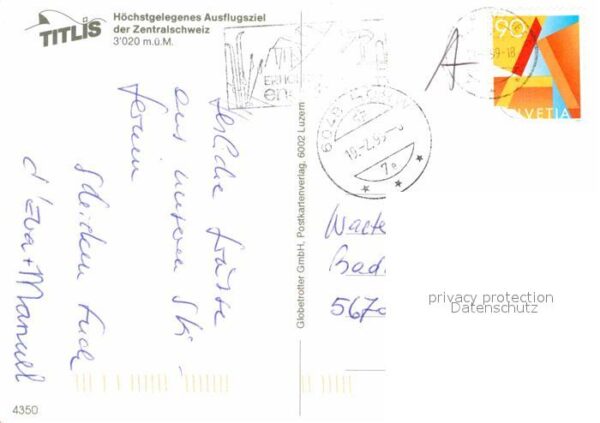 TITLIS
Höchstgelegenes Ausflugsziel
der Zentralschweiz
3'020 m.ü.M.
Herzliche Grüsse
aus unseren Ski-
ferien
schicken Euch
d'Eva + Manuel
4350
Globetrotter GmbH, Postkartenverlag, 6002 Luzern
A
90
HELVETIA
6048
7a
Bad
567
privacy protection
Datenschutz